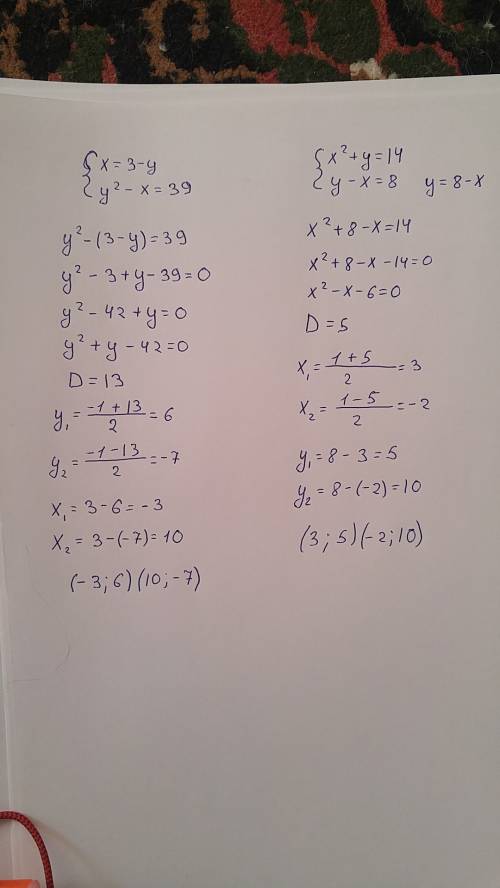 x = 3-y
y² - x = 39
y² - (3-y) = 39
y² - 3 + y - 39 = 0
y² - 42 + y = 0
y² + y - 42 = 0
D = 13
y₁ = (-1 + 13)/2 = 6
y₂ = (-1 - 13)/2 = -7
x₁ = 3 - 6 = -3
x₂ = 3 - (-7) = 10
(-3; 6) (10; -7)
x² + y = 14
y - x = 8 y = 8 - x
x² + 8 - x = 14
x² + 8 - x - 14 = 0
x² - x - 6 = 0
D = 5
x₁ = (1 + 5)/2 = 3
x₂ = (1 - 5)/2 = -2
y₁ = 8 - 3 = 5
y₂ = 8 - (-2) = 10
(3; 5) (-2; 10)